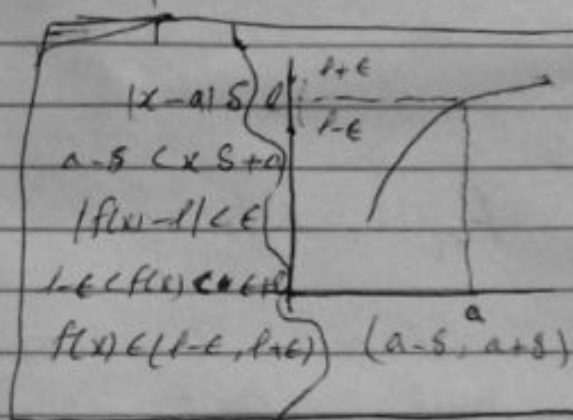 |x-a| δ
a-δ < x δ+a
|f(x)-l| < ε
l-ε < f(x) < ε+l
f(x) ∈ (l-ε, l+ε)
l+ε
l
l-ε
a
(a-δ, a+δ)